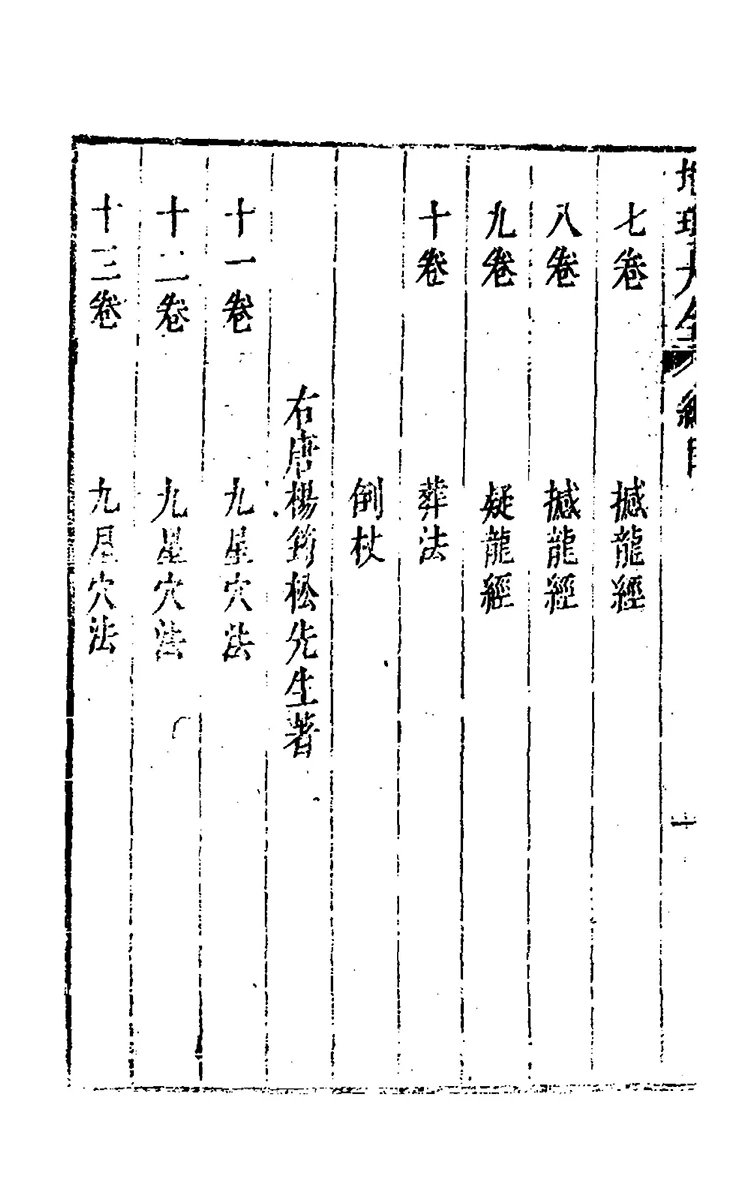 地理大全 總目
七卷 撼龍經
八卷 撼龍經
九卷 疑龍經
十卷 葬法
倒杖
右唐楊筠松先生著
十一卷 九星穴法
十二卷 九星穴法
十三卷 九星穴法